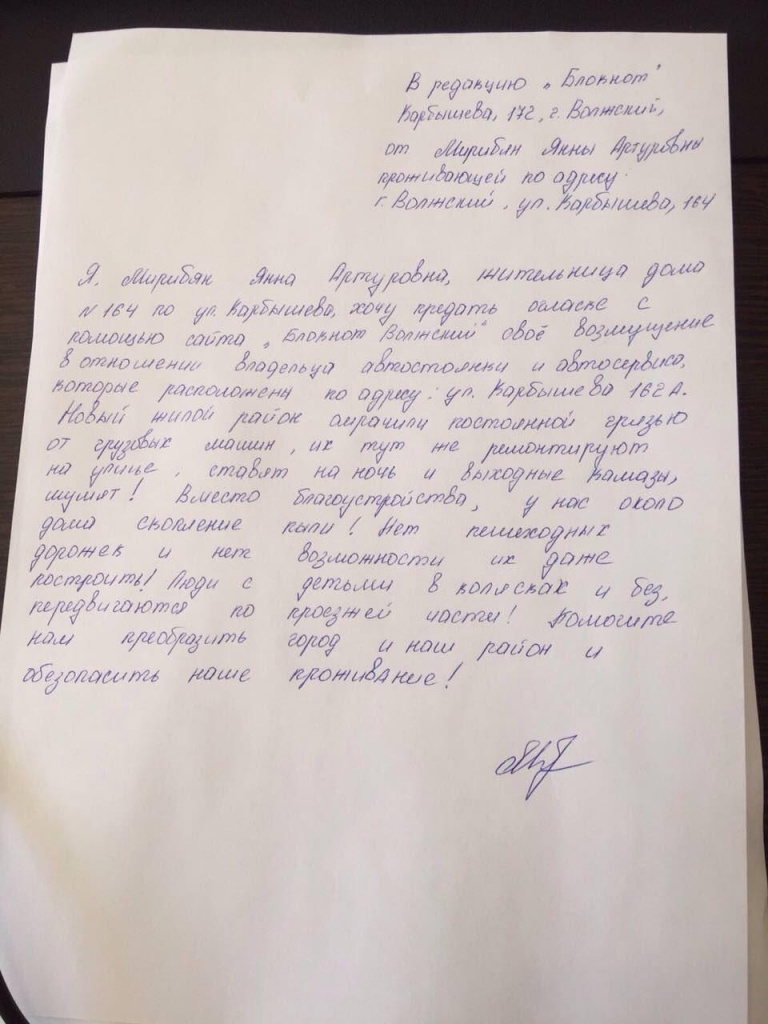 В редакцию „Блокнот"
Карбышева, 172, г. Волжский,
от Мирибян Янны Артуровны
проживающей по адресу:
г. Волжский, ул. Карбышева, 164
Я, Мирибян Янна Артуровна, жительница дома
N 164 по ул. Карбышева, хочу предать огласке с
помощью сайта „Блокнот Волжский" своё возмущение
в отношении владельца автостоянки и автосервиса,
которые расположены по адресу: ул. Карбышева 162А.
Новый жилой район омрачили постоянной грязью
от грузовых машин, их тут же ремонтируют
на улице, ставят на ночь и выходные камазы,
шумят! Вместо благоустройства, у нас около
дома скопление пыли! Нет пешеходных
дорожек и нет возможности их даже
построить! Люди с детьми в колясках и без,
передвигаются по проезжей части! Помогите
нам преобразить город и наш район и
обезопасить наше проживание!